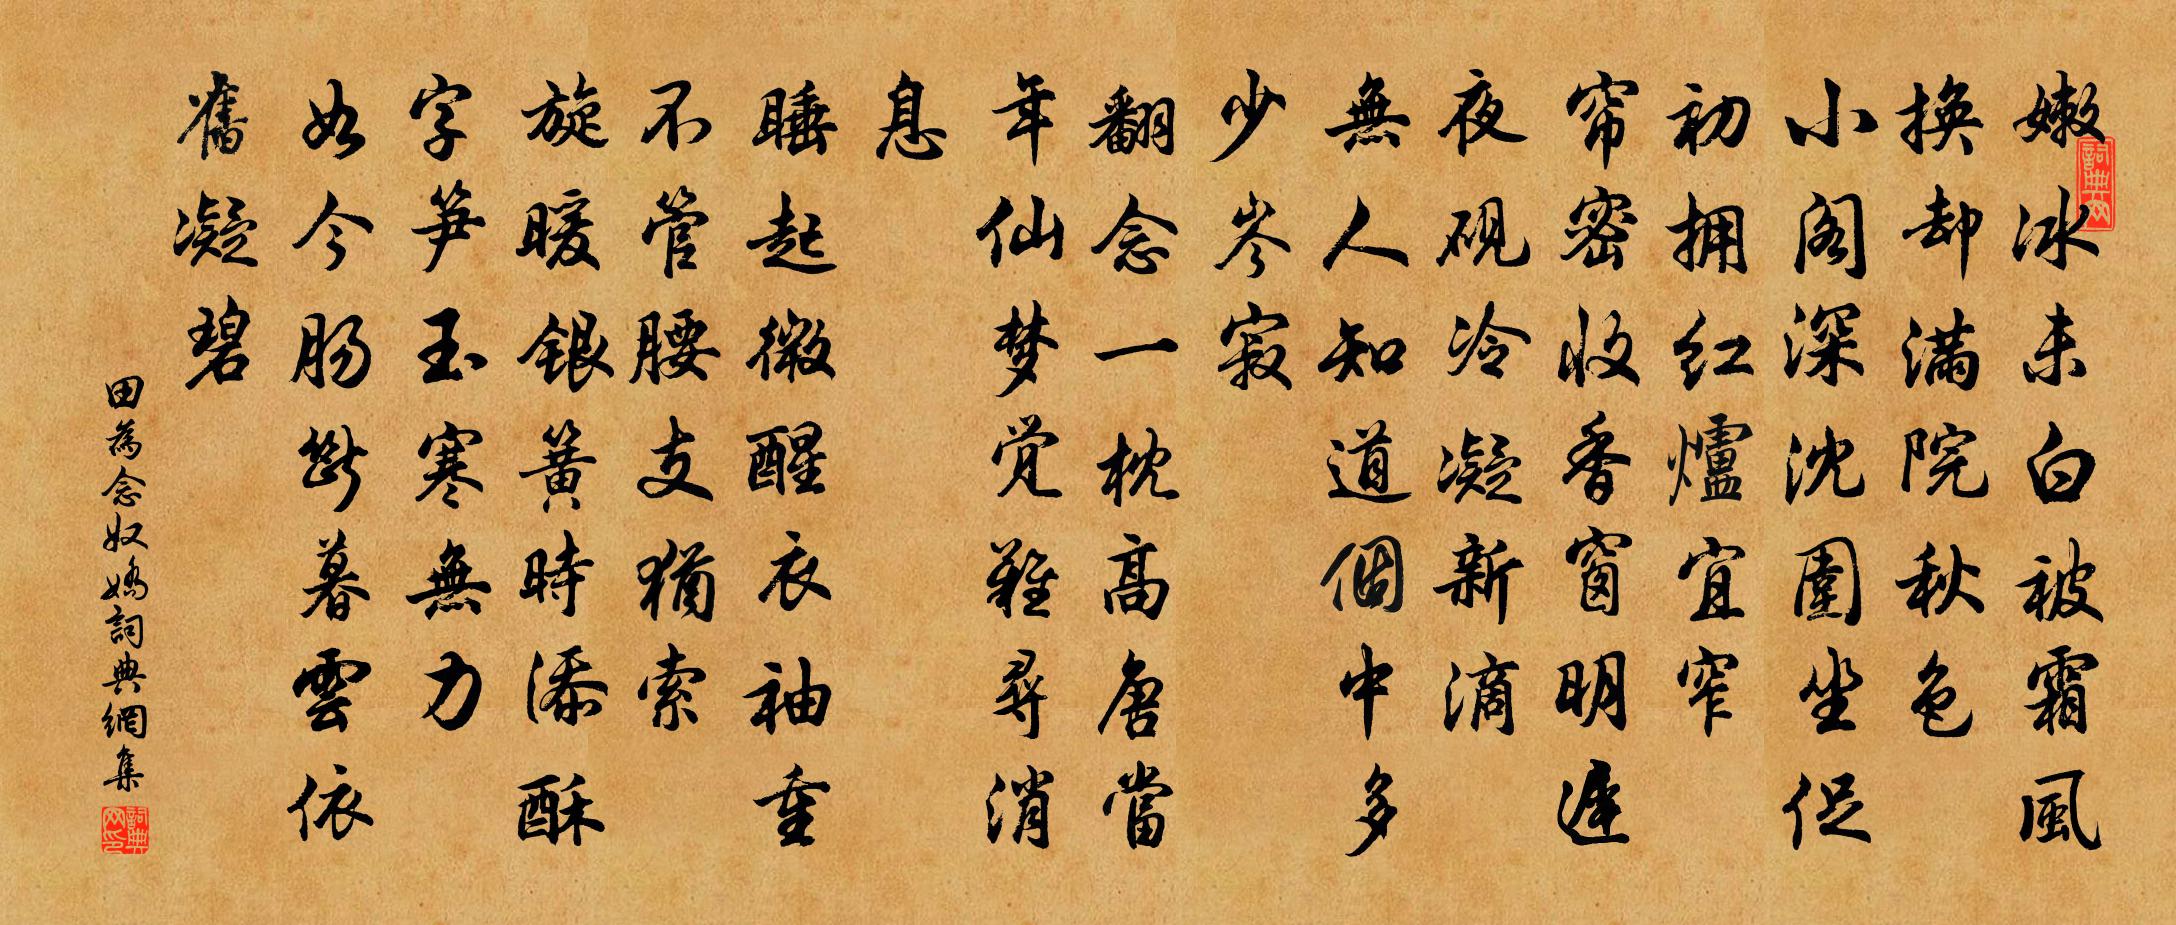 嫩冰未白被霜風
換却满院秋色
小阁深沈圍坐促
初拥红爐宜窄
帘密收香窗明遲
夜砚冷凝新滴
無人知道個中多
少岑寂
翻念一枕高唐當
年仙梦觉難尋消
息
睡起微醒衣袖重
不管腰支猶索
旋暖银簧時添酥
字笋玉寒無力
如今肠断暮雲依
舊凝碧
田為念奴嬌詞典網集
詞典网
詞典网印